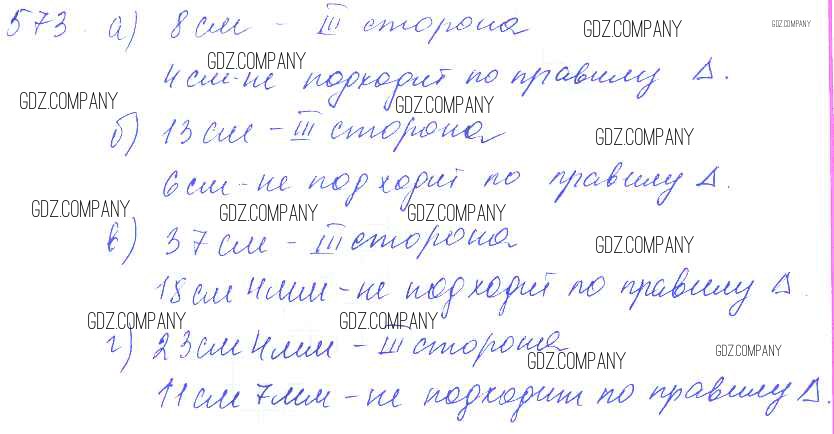 573. а) 8 см - III сторона GDZ.COMPANY GDZ.COMPANY
GDZ.COMPANY
4 см-не подходит по правилу Δ.
GDZ.COMPANY GDZ.COMPANY
б) 13 см - III сторона GDZ.COMPANY
6 см-не подходит по правилу Δ.
GDZ.COMPANY GDZ.COMPANY GDZ.COMPANY
в) 37 см - III сторона GDZ.COMPANY
18 см 4 мм - не подходит по правилу Δ
GDZ.COMPANY GDZ.COMPANY
г) 23 см 4 мм - III сторона GDZ.COMPANY
GDZ.COMPANY
11 см 7 мм - не подходит по правилу Δ.